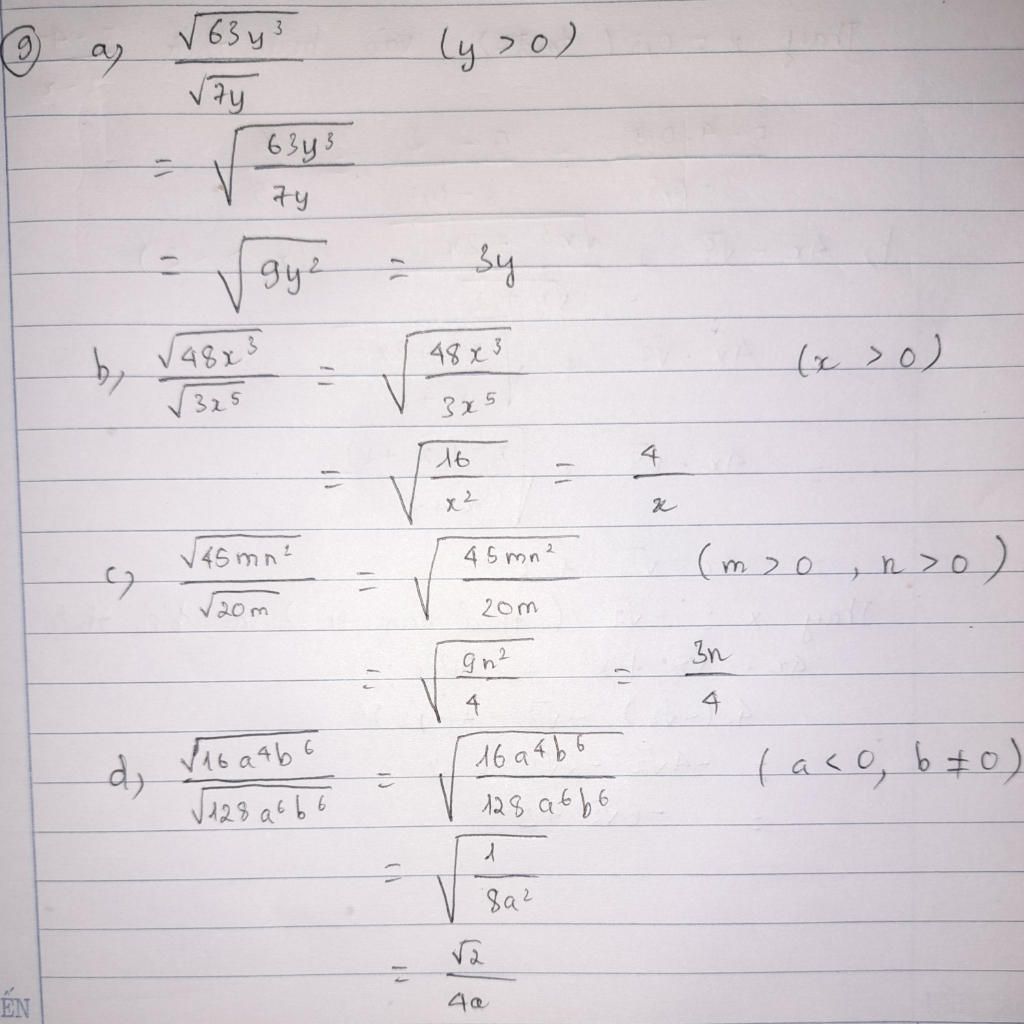 9 a) √63y³ / √7y (y > 0)
= √(63y³ / 7y)
= √9y² = 3y
b) √48x³ / √3x⁵ = √(48x³ / 3x⁵) (x > 0)
= √(16 / x²) = 4 / x
c) √45mn² / √20m = √(45mn² / 20m) (m > 0, n > 0)
= √(9n² / 4) = 3n / 4
d) √16a⁴b⁶ / √128a⁶b⁶ = √(16a⁴b⁶ / 128a⁶b⁶) (a < 0, b ≠ 0)
= √(1 / 8a²)
= √2 / 4a
ẾN